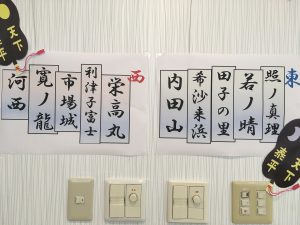 東
照ノ真理
若ノ晴
田子の里
希沙来浜
内田山
西
栄高丸
利津子富士
市場城
寛ノ龍
河西
天下泰平
天下泰平